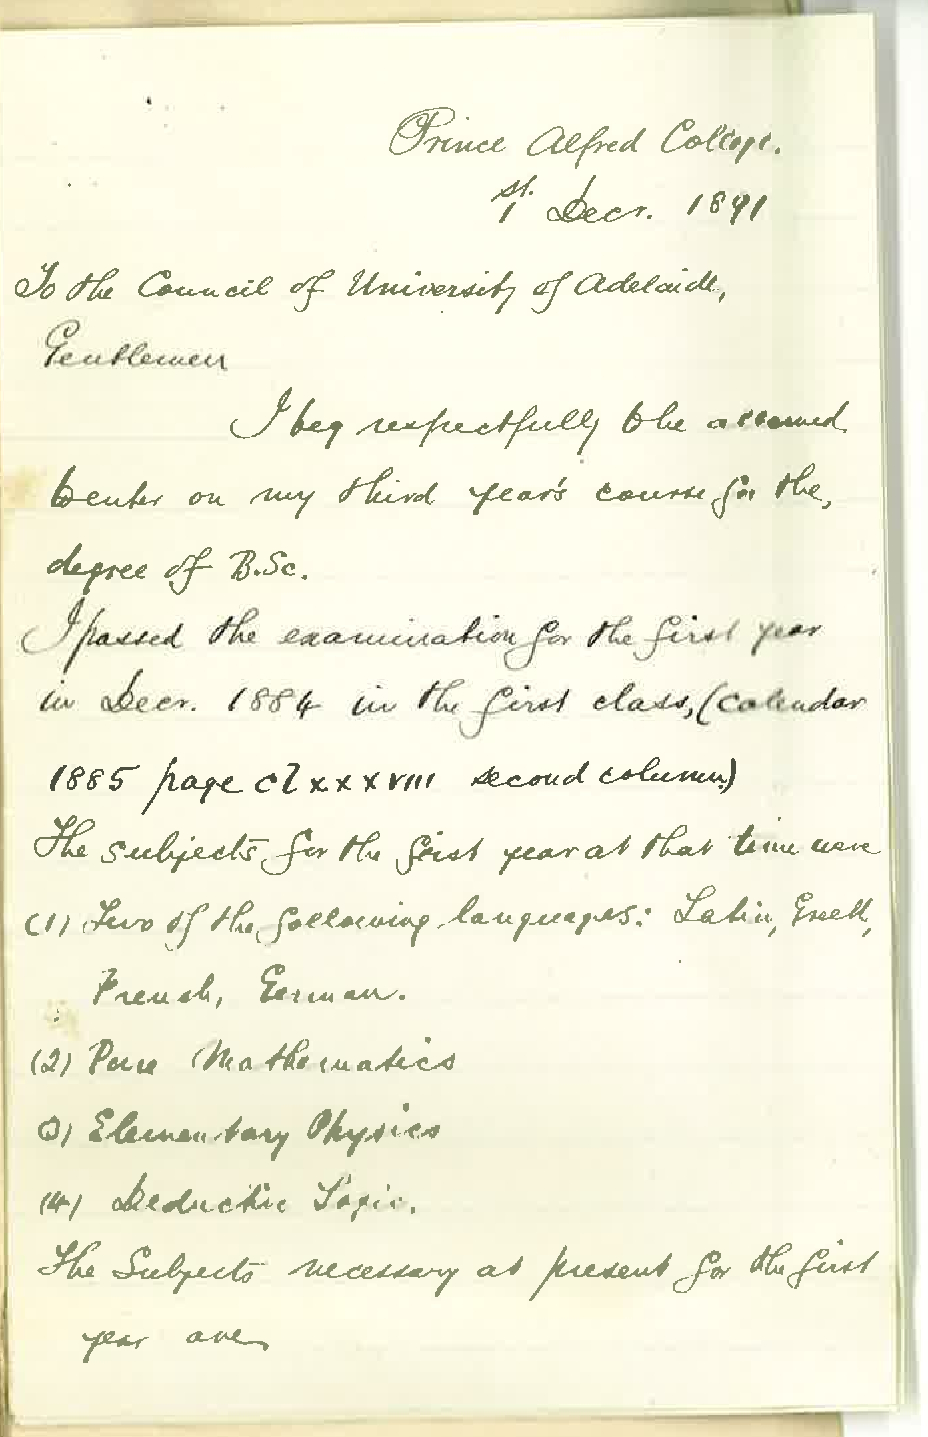 Prince Alfred College.
1st. Decr. 1891
To the Council of University of Adelaide,
Gentlemen
I beg respectfully to be allowed
to enter on my third year's course for the
degree of B.Sc.
I passed the examination for the first year
in Decr. 1884 in the first class, (Calendar
1885 page clxxxviii second column)
The subjects for the first year at that time were
(1) Two of the following languages: Latin, Greek,
French, German.
(2) Pure Mathematics
(3) Elementary Physics
(4) Deductive Logic.
The Subjects necessary at present for the first
year are